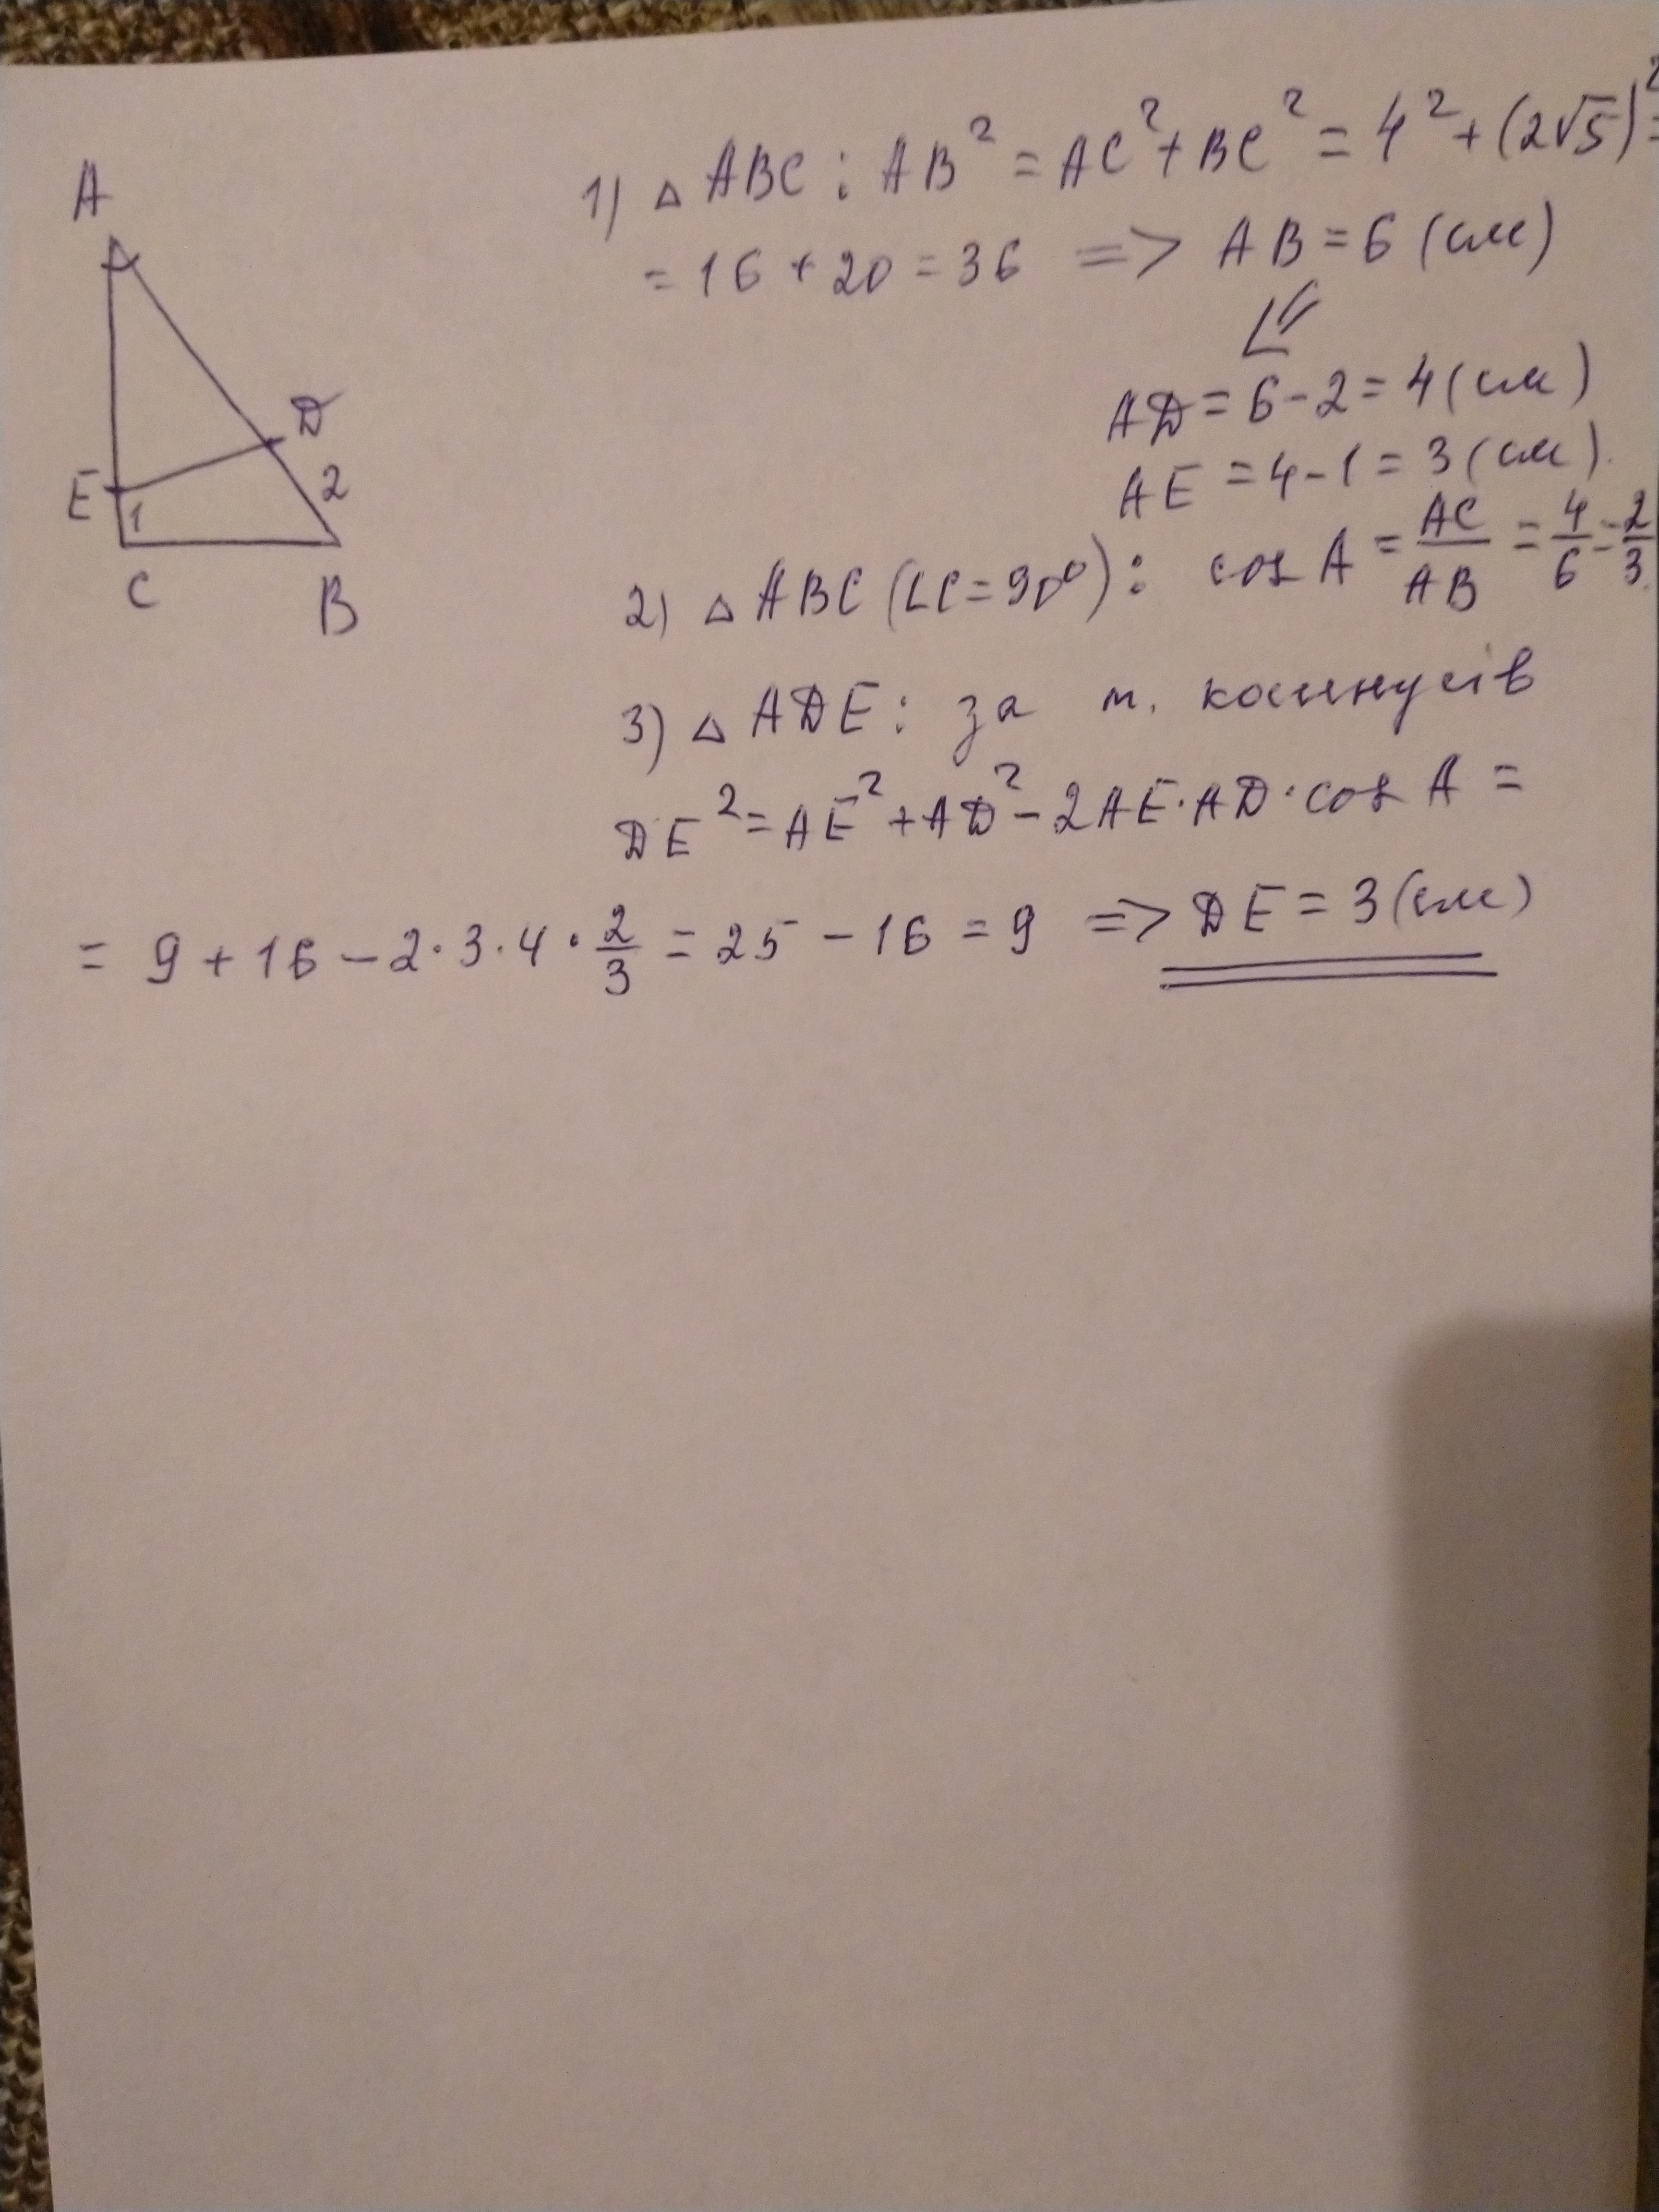 1) △ ABC : AB² = AC² + BC² = 4² + (2√5)² =
= 16 + 20 = 36 => AB = 6 (см)
AD = 6 - 2 = 4 (см)
AE = 4 - 1 = 3 (см).
2) △ ABC (∠C = 90°) : cos A = AC/AB = 4/6 = 2/3.
3) △ ADE : за т. косинусів
DE² = AE² + AD² - 2AE · AD · cos A =
= 9 + 16 - 2 · 3 · 4 · 2/3 = 25 - 16 = 9 => DE = 3 (см)
A
D
E
1
2
C
B